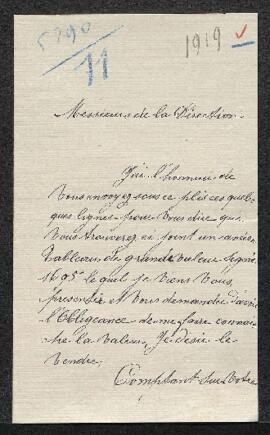 5290/11
1919
Messieurs de la Direction
J'ai l'honneur de
Vous envoyez sous ce plis ces quel-
ques lignes pour Vous dire que
Vous trouverez ci joint un ancien
Tableau de grande valeur Signé
1695 le quel je Viens Vous
présenter et Vous demander d'avoir
l'Obligeance de me faire connai-
tre la Valeur, Je désire le
Vendre,
Comptant sur Votre